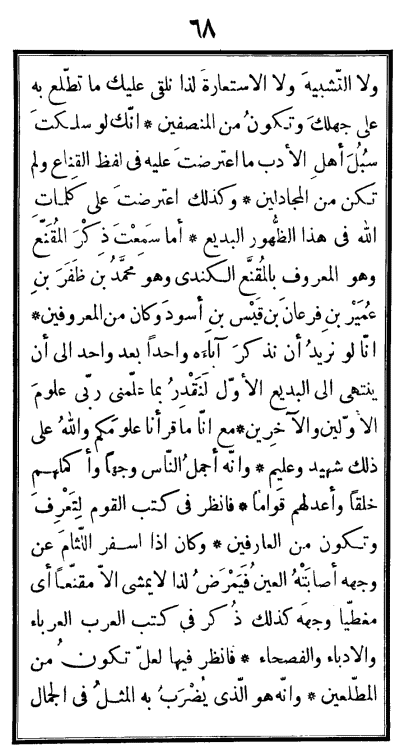 ٦٨
ولا التّشبيهَ ولا الاستعارةَ لذا نلقى عليك ما تطّلع به
على جهلكَ وتكونُ من المنصفين * انّك لو سلكتَ
سُبُلَ أهلِ الأدب ما اعترضتَ عليه فى لفظ القِناع ولم
تكن من المجادلين * وكذلك اعترضتَ على كلماتِ
الله فى هذا الظّهور البديع * أما سَمِعْتَ ذِكْرَ المُقَنَّعِ
وهو المعروف بالمُقنَّعِ الكندى وهو محمَّدُ بن ظَفَرَ بنِ
عُمَيْرِ بنِ فرعانَ بنِ قَيْسِ بنِ أسودَ وكان من المعروفين *
انّا لو نريدُ أن نذكرَ آباءَه واحداً بعد واحد الى أن
ينتهى الى البديع الأوّل لَنَقْدِرُ بما علّمنى ربّى علومَ
الأوّلين والآخرين * مع انّا ما قرأنا علومَكم واللهُ على
ذلك شهيد وعليم * وانّه أجملُ النّاس وجهًا وأكملهم
خلقًا وأعدلهم قوامًا * فانظر فى كتب القوم لِتَعْرِفَ
وتكون من العارفين * وكان اذا اسفر اللّثامَ عن
وجهه أصابَتْهُ العينُ فيَمْرَضُ لذا لايمشى الاّ مقنّعاً أى
مغطّيا وجهَه كذلك ذُكر فى كتب العرب العرباء
والادباء والفصحاء * فانظر فيها لعلّ تكونُ من
المطّلعين * وانّه هو الّذى يُضْرَبُ به المثلُ فى الجمال